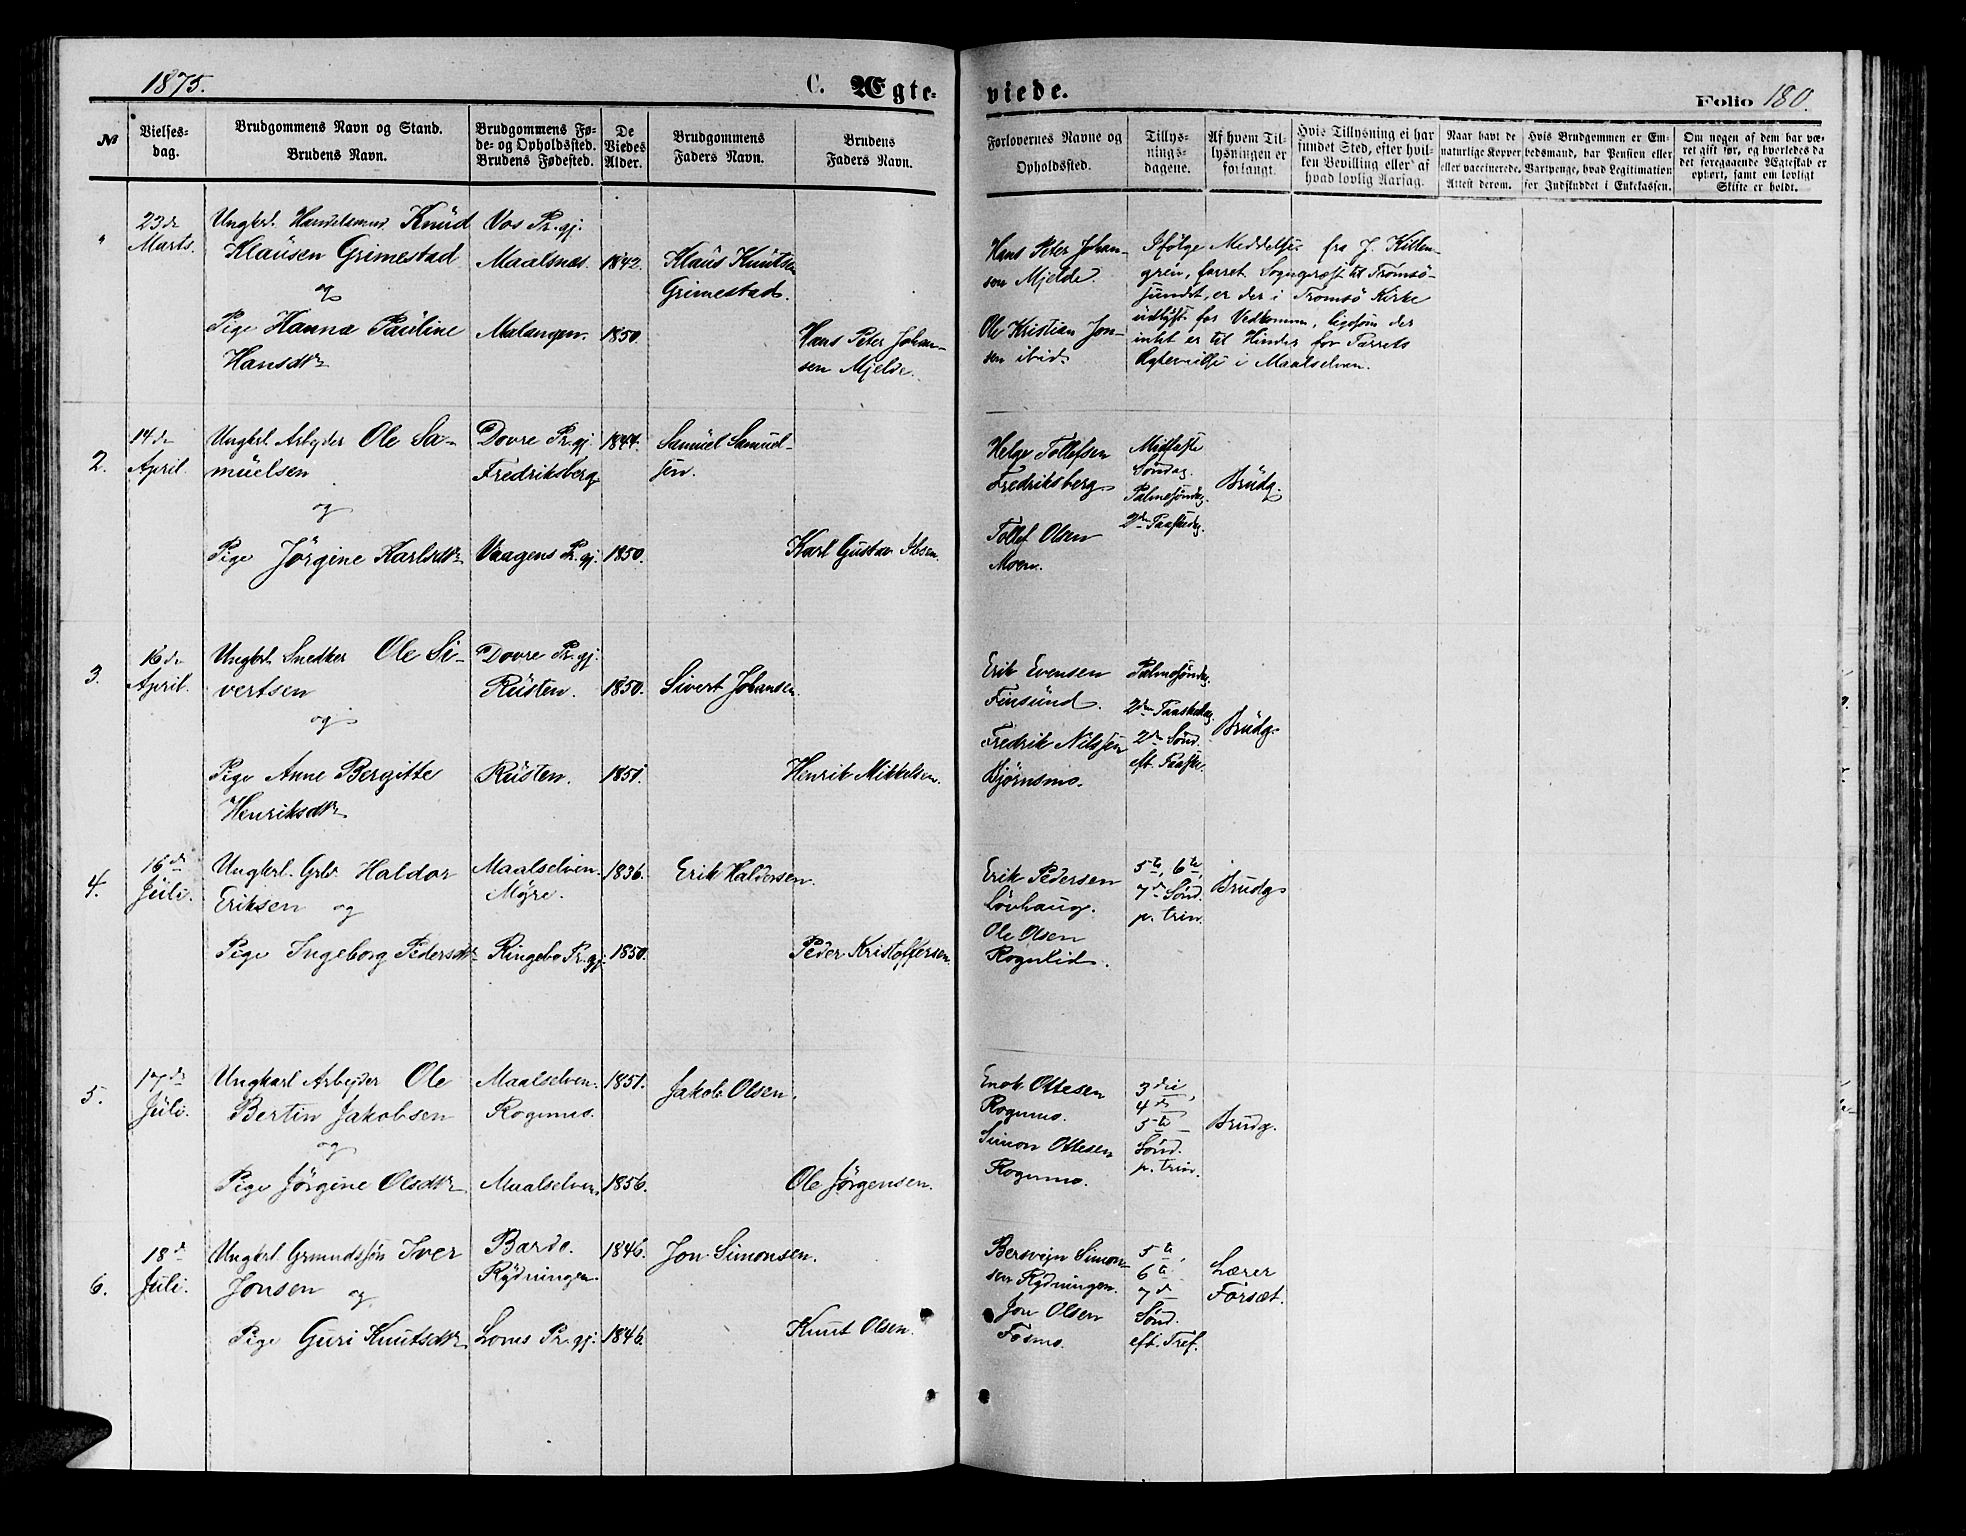 1875.
C. Ægteviede.
Folio 180.
№
Vielsesdag.
Brudgommens Navn og Stand.
Brudens Navn.
Brudgommens Føde- og Opholdssted.
Brudens Fødested.
De Viedes Alder.
Brudgommens Faders Navn.
Brudens Faders Navn.
Forlovernes Navne og Opholdssted.
Tillysningsdagene.
Af hvem Tillysningen er forlangt.
Hvis Tillysning ei har fundet Sted, efter hvilken Bevilling eller af hvad lovlig Aarsag.
Naar havt de naturlige Kopper eller vaccinerede. Attest derom.
Hvis Brudgommen er Embedsmand, har Pension eller Vartpenge, hvad Legitimation for Indskuddet i Enkekassen.
Om nogen af dem har været gift før, og hvorledes da det foregaaende Ægteskab er ophørt, samt om lovligt Skifte er holdt.
"
23de Marts.
Ungkrl. Handelsmand Knud
Klausen Grimestad
og
Pige Hanna Pauline
Hansdtr
Vos Pr.gj.
Maalsnes.
Malangen.
1842.
1850.
Klaus Knutsen
Grimestad.
Hans Peter Johan-
sen Mjelde.
Hans Peter Johan-
sen Mjelde.
Ole Kristian Jon-
sen ibid.
Ifølge Meddelse fra J. Killen-
gren, forret. Sognepræst til Tromsö-
sundet, er der i Tromsö Kirke
udlyst for Vedkomm., ligesom der
intet er til Hinder for Parrets
Ægtevielse i Maalselven.
2.
14de
April.
Ungkrl. Arbejder Ole Sa-
muelsen
og
Pige Jörgine Karlsdtr
Dovre Pr.gj.
Fredriksberg
Vaagens Pr.gj.
1844.
1850.
Samuel Samuel-
sen.
Karl Gustav Ibsen.
Helge Tollefsen
Fredriksberg
Tollef Olsen
Moen.
Midfaste
Söndag.
Palmesöndag.
2den Paaskedag.
Brudg.
3.
16de
April.
Ungkrl. Snedker Ole Si-
vertsen
og
Pige Anne Bergitte
Henriksdtr
Dovre Pr.gj.
Rusten.
Rusten.
1850.
1851.
Sivert Johansen.
Henrik Mikkelsen.
Erik Evensen
Finsund.
Fredrik Nilssen
Björnsmo.
Palmesöndag.
2den Paaskedag
2den Sönd.
eft. Paaske.
Brudg.
4.
16de
Juli.
Ungkrl. Grbr. Haldor
Eriksen og
Pige Ingeborg Pedersdtr
Maalselven.
Myre.
Ringebo Pr.gj.
1836.
1850.
Erik Haldorsen.
Peder Kristoffersen.
Erik Pedersen
Lövhaug.
Ole Olsen
Rognlid.
5te, 6te,
7de Sönd.
p. trin.
Brudg
5.
17de
Juli.
Ungkarl Arbejder Ole
Bertin Jakobsen
og
Pige Jörgine Olsdtr
Maalselven.
Rognmo.
Maalselven.
1851.
1856.
Jakob Olsen.
Ole Jörgensen.
Enok Ottesen
Rognmo.
Simon Ottesen
Rognmo.
3die,
4de
5te
Sönd.
p. trin.
Brudg.
6.
18de
Juli.
Ungkrl Grmandssön Iver
Jonsen og
Pige Guri Knutsdtr
Bardo.
Rydningen.
Loms Pr.gj.
1846.
1846.
Jon Simonsen.
Knut Olsen.
Bersvejn Simon-
sen Rydningen.
Jon Olsen
Fosmo.
5te,
6te
7de
Sönd.
eft. Tref.
Lærer
Forsæt.